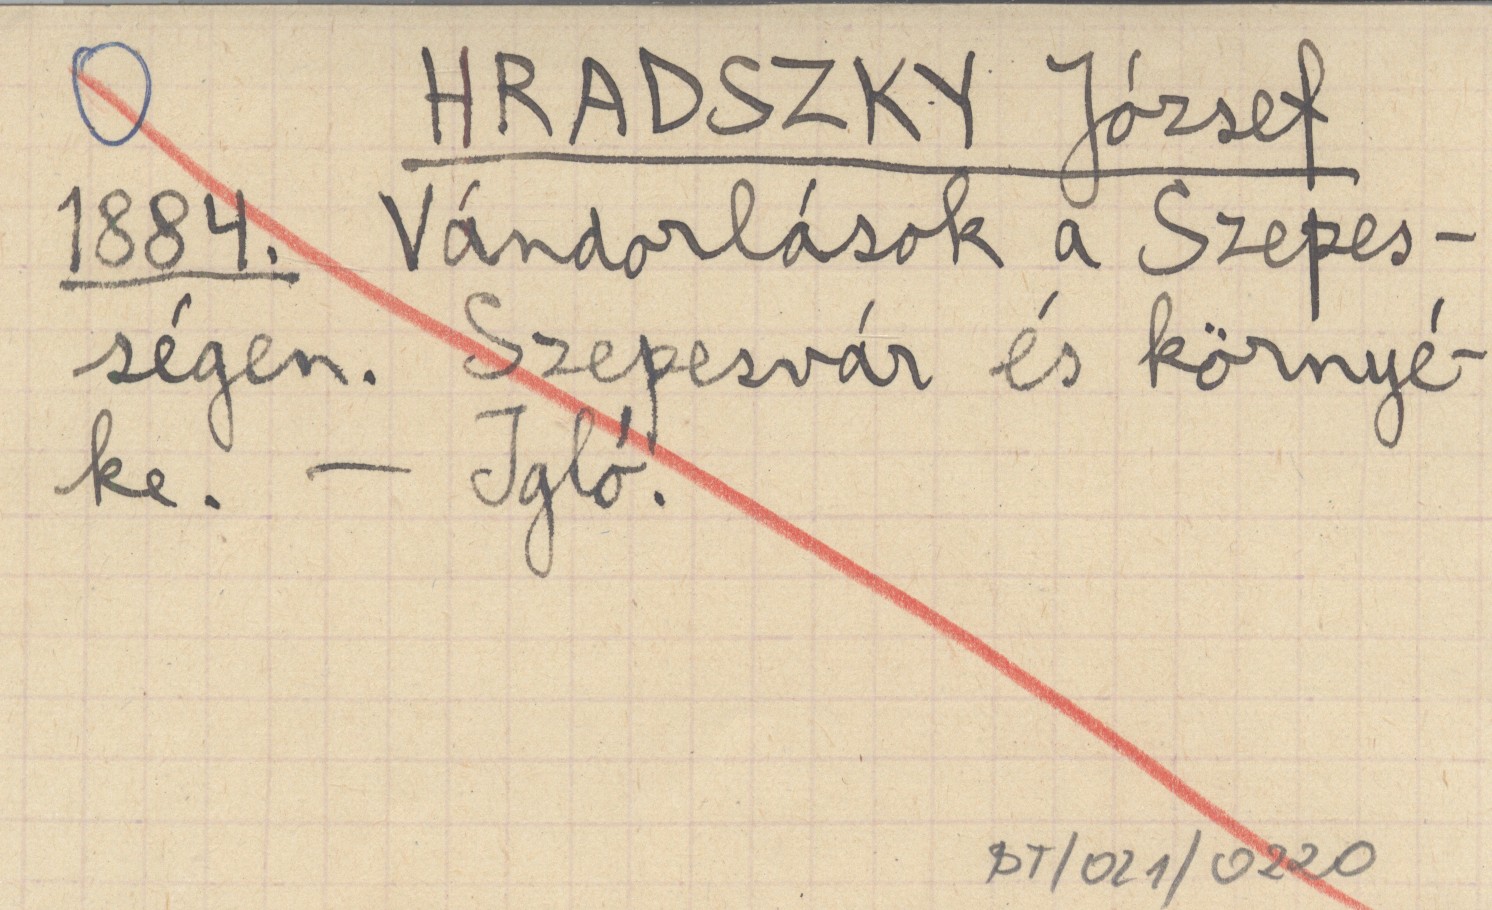 HRADSZKY József
1884. Vándorlások a Szepes-
ségen. Szepesvár és környé-
ke. — Igló.
BT/021/0220